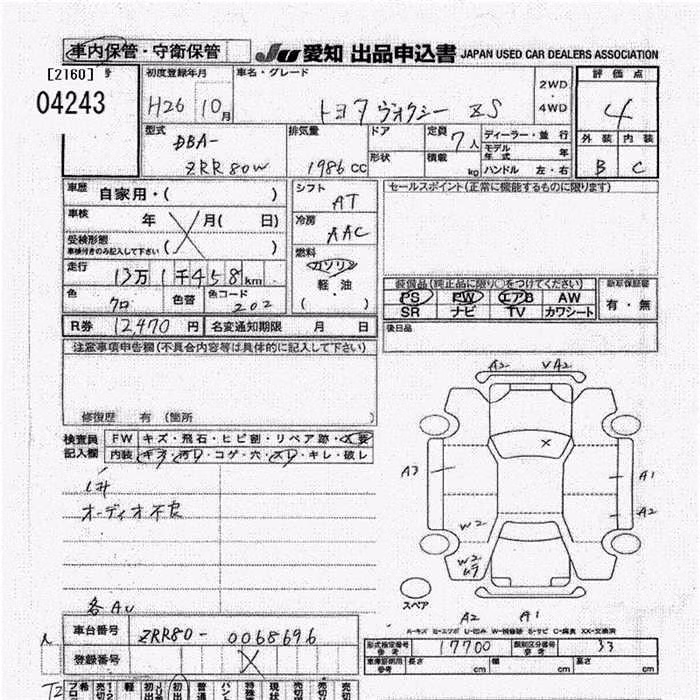 車内保管・守衛保管
JU 愛知 出品申込書 JAPAN USED CAR DEALERS ASSOCIATION
[2160] 号
04243
初度登録年月 車名・グレード 2WD・4WD 評価点
H26 10月 トヨタ ヴォクシー ZS 4
型式 排気量 ドア 定員 7人 ディーラー・並行 外装 内装
DBA- 形状 積載 kg モデル年式 年
ZRR80W 1986cc ハンドル 左・右 B C
車歴 自家用・( ) シフト AT セールスポイント(正常に機能するものに限ります)
車検 年 月( 日) 冷房 AAC
受検形態 ( )
車検付きのみ記入して下さい
燃料 ガソリン 軽・油 ( )
走行 13万1千458km
色 クロ 色替 色コード 202
装備品(純正品に限り○をつけてください) 新車保証書
PS PW エアB AW 有・無
SR ナビ TV カワシート
R券 12,470円 名変通知期限 月 日 後日品
注意事項申告欄(不具合内容等は具体的に記入して下さい)
修復歴 有 (箇所 )
検査員記入欄 FW キズ・飛石・ヒビ割・リペア跡・X要
内装 キズ・汚レ・コゲ・穴・スレ・キレ・破レ
オーディオ不良
A2 VA2
X
A3 A1
A2
W2
W2
ムラ
スペア
A2 A1
各AU
A-キズ E-エクボ U-凹み W-補修跡 S-サビ C-腐食 XX-交換済
車台番号 ZRR80-0068696
型式指定番号 参考 17700 類別区分番号 参考 33
登録番号 X
長さ cm 幅 cm 高さ cm